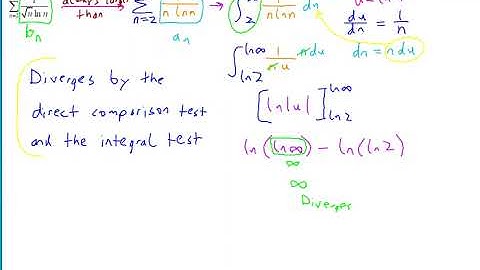 ∞ Σ n=2 1/(√n ln n) always larger than Σ n=2 1/(n ln n) → ∫₂^∞ 1/(n ln n) dn
bₙ aₙ du/dn = 1/n
dn = n du
∫_{ln2}^{ln∞} 1/(n u) n du
Diverges by the
direct comparison test
and the integral test
[ln|u|]_{ln2}^{ln∞}
ln(ln∞) − ln(ln2)
∞
∞
Diverges